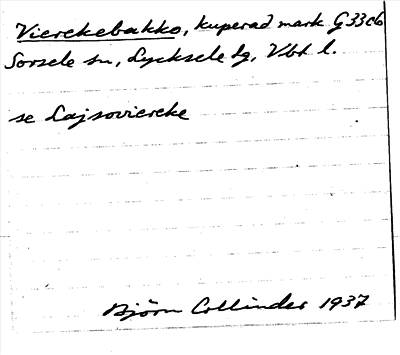 Vierekebakko, kuperad mark G33cb
Sorsele sn, Lycksele lg, Vbt l.
se Lajsoviereke
Björn Collinder 1937